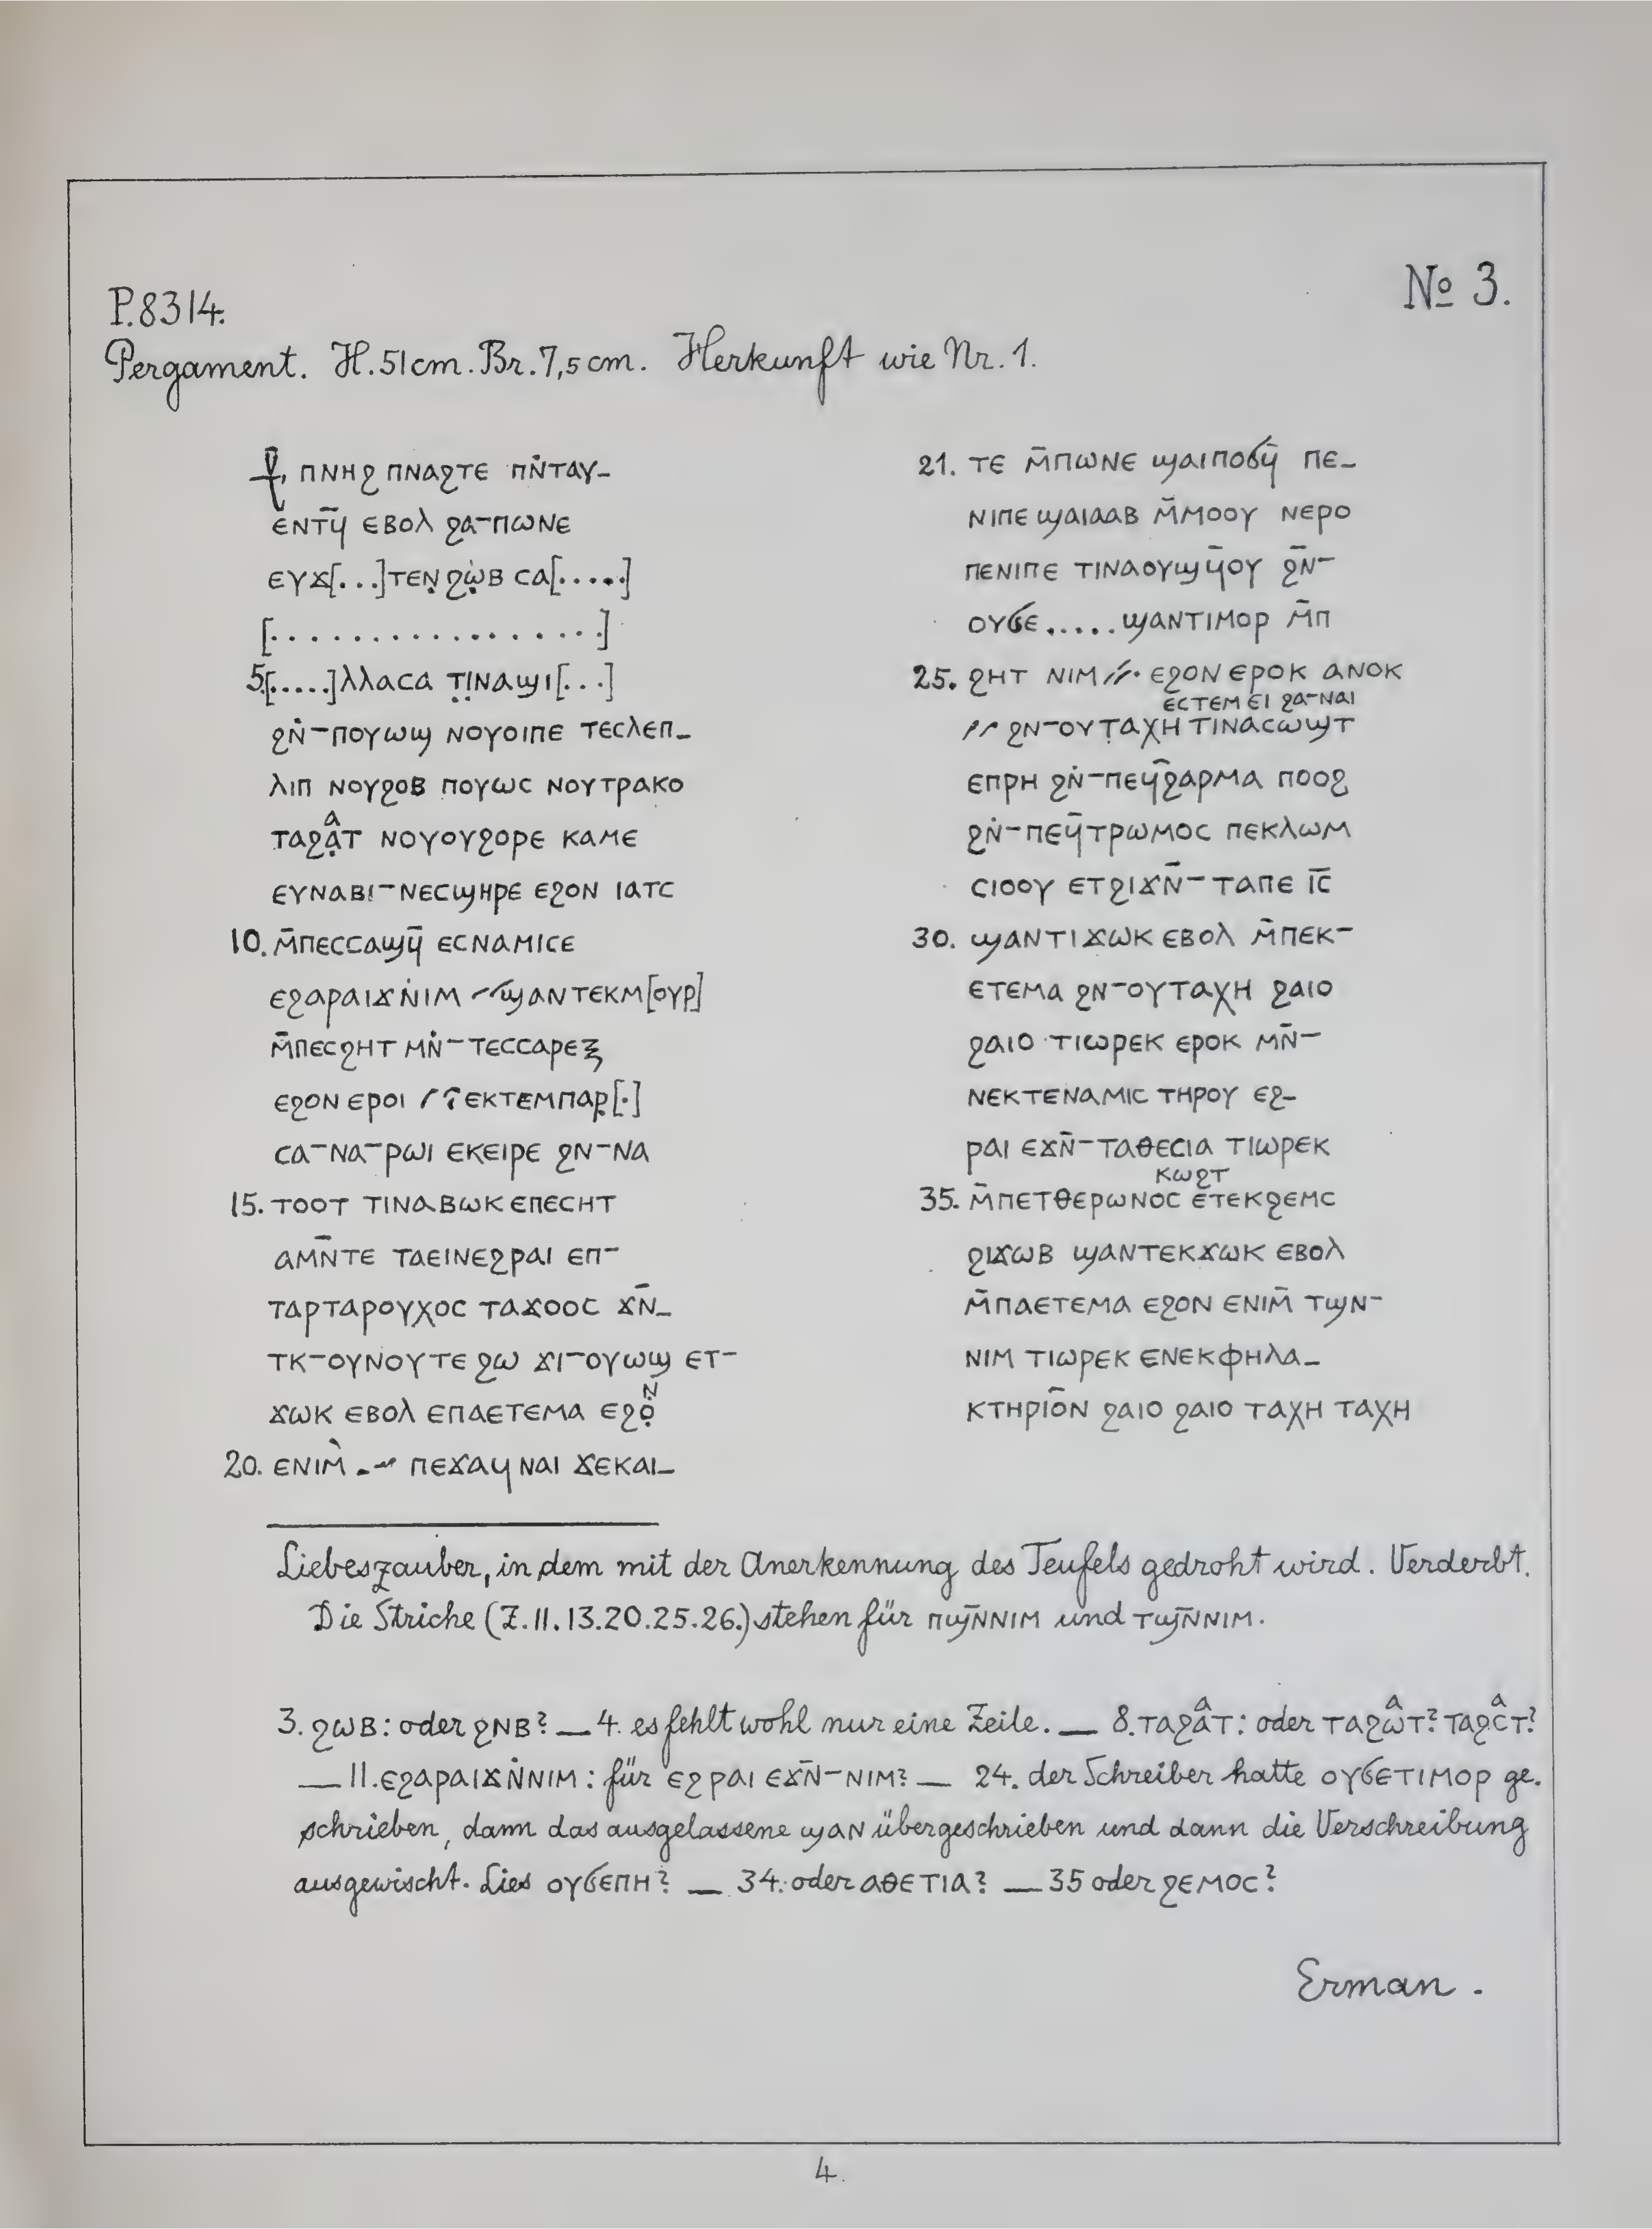 P.8314.
№ 3.
Pergament. H. 51 cm. Br. 7,5 cm. Herkunft wie Nr. 1.
⳨ ⲡⲛⲏϩ ⲡⲛⲁϩⲧⲉ ⲡⲛ̇ⲧⲁⲩ-
ⲉⲛⲧϥ̄ ⲉⲃⲟⲗ ϩⲁ-ⲡⲱⲛⲉ
ⲉⲩϫ[...]ⲧⲉⲛ̣ ϩ̣ⲱ̣̇ⲃ ⲥⲁ[.....]
[.................]
5.[.....]ⲗⲗⲁⲥⲁ ⲧ̣ⲓ̣ⲛⲁϣⲓ[...]
ϩⲛ̇-ⲡⲟⲩⲱϣ ⲛⲟⲩⲟⲓⲡⲉ ⲧⲉⲥⲗⲉⲡ-
ⲗⲓⲡ ⲛⲟⲩϩⲟⲃ ⲡⲟⲩⲱⲥ ⲛⲟⲩⲧⲣⲁⲕⲟ
ⲧⲁϩⲁ̣̂ᵃⲧ ⲛⲟⲩⲟⲩϩⲟⲣⲉ ⲕⲁⲙⲉ
ⲉⲩⲛⲁⲃⲓ-ⲛⲉⲥϣⲏⲣⲉ ⲉϩⲟⲛ ⲓⲁⲧⲥ
10. ⲙ̄ⲡⲉⲥⲥⲁϣϥ̄ ⲉⲥⲛⲁⲙⲓⲥⲉ
ⲉϩⲁⲣⲁⲓϫⲛ̇ⲓⲙ ⸗ ϣⲁⲛⲧⲉⲕⲙ[ⲟⲩⲣ]
ⲙ̄ⲡⲉⲥϩⲏⲧ ⲙⲛ̇-ⲧⲉⲥⲥⲁⲣⲉⲝ
ⲉϩⲟⲛ ⲉⲣⲟⲓ ⸗ ⲉⲕⲧⲉⲙⲡⲁⲣ̣[.]
ⲥⲁ-ⲛⲁ-ⲣⲱⲓ ⲉⲕⲉⲓⲣⲉ ϩⲛ-ⲛⲁ
15. ⲧⲟⲟⲧ ⲧⲓⲛⲁⲃⲱⲕ ⲉⲡⲉⲥⲏⲧ
ⲁⲙⲛ̄ⲧⲉ ⲧⲁⲉⲓⲛⲉϩⲣⲁⲓ ⲉⲡ-
ⲧⲁⲣⲧⲁⲣⲟⲩⲭⲟⲥ ⲧⲁϫⲟⲟⲥ ϫⲛ̄-
ⲧⲕ-ⲟⲩⲛⲟⲩⲧⲉ ϩⲱ ϫⲓ-ⲟⲩⲱϣ ⲉⲧ-
ϫⲱⲕ ⲉⲃⲟⲗ ⲉⲡⲁⲉⲧⲉⲙⲁ ⲉϩⲟ̣ⲛ
20. ⲉⲛⲓⲙ̀ ⸗ ⲡⲉϫⲁϥ ⲛⲁⲓ ϫⲉⲕⲁⲓ-
21. ⲧⲉ ⲙ̄ⲡⲱⲛⲉ ϣⲁⲓⲡⲟϭϥ̄ ⲡⲉ-
ⲛⲓⲡⲉ ϣⲁⲓⲁⲁⲃ ⲙ̄ⲙⲟⲟⲩ ⲛⲉⲣⲟ
ⲡⲉⲛⲓⲡⲉ ⲧⲓⲛⲁⲟⲩϣϥ̄ⲟⲩ ϩⲛ̄-
ⲟⲩϭⲉ.....ϣⲁⲛⲧⲓⲙⲟⲣ ⲙ̄ⲡ
25. ϩⲏⲧ ⲛⲓⲙ ⸗ ⲉϩⲟⲛ ⲉⲣⲟⲕ ⲁⲛⲟⲕ
ⲉⲥⲧⲉⲙ ⲉⲓ ϩⲁ-ⲛⲁⲓ
⸗ ϩⲛ-ⲟⲩⲧⲁⲭⲏ ⲧⲓⲛⲁⲥⲱϣⲧ
ⲉⲡⲣⲏ ϩⲛ̇-ⲡⲉϥ̄ϩⲁⲣⲙⲁ ⲡⲟⲟϩ
ϩⲛ̇-ⲡⲉϥ̄ⲧⲣⲱⲙⲟⲥ ⲡⲉⲕⲗⲱⲙ
ⲥⲓⲟⲟⲩ ⲉⲧϩⲓϫⲛ̄-ⲧⲁⲡⲉ ⲓ̅ⲥ̅
30. ϣⲁⲛⲧⲓϫⲱⲕ ⲉⲃⲟⲗ ⲙ̄ⲡⲉⲕ-
ⲉⲧⲉⲙⲁ ϩⲛ-ⲟⲩⲧⲁⲭⲏ ϩⲁⲓⲟ
ϩⲁⲓⲟ ⲧⲓⲱⲣⲉⲕ ⲉⲣⲟⲕ ⲙⲛ̄-
ⲛⲉⲕⲧⲉⲛⲁⲙⲓⲥ ⲧⲏⲣⲟⲩ ⲉϩ-
ⲣⲁⲓ ⲉϫⲛ̄-ⲧⲁⲑⲉⲥⲓⲁ ⲧⲓⲱⲣⲉⲕ
ⲕⲱϩⲧ
35. ⲙ̄ⲡⲉⲧⲑⲉⲣⲱⲛⲟⲥ ⲉⲧⲉⲕϩⲉⲙⲥ
ϩⲓϫⲱⲃ ϣⲁⲛⲧⲉⲕϫⲱⲕ ⲉⲃⲟⲗ
ⲙ̄ⲡⲁⲉⲧⲉⲙⲁ ⲉϩⲟⲛ ⲉⲛⲓⲙ̄ ⲧϣⲛ-
ⲛⲓⲙ ⲧⲓⲱⲣⲉⲕ ⲉⲛⲉⲕⲫⲏⲗⲁ-
ⲕⲧⲏⲣⲓⲟ̄ⲛ ϩⲁⲓⲟ ϩⲁⲓⲟ ⲧⲁⲭⲏ ⲧⲁⲭⲏ
Liebeszauber, in dem mit der Anerkennung des Teufels gedroht wird. Verderbt.
Die Striche (Z. 11. 13. 20. 25. 26.) stehen für ⲡϣⲛ̄ⲛⲓⲙ und ⲧϣⲛ̄ⲛⲓⲙ.
3. ϩⲱⲃ: oder ϩⲛⲃ? — 4. es fehlt wohl nur eine Zeile. — 8. ⲧⲁϩⲁ̂ᵃⲧ: oder ⲧⲁϩⲱ̂ᵃⲧ? ⲧⲁϩⲥ̂ᵃⲧ?
— 11. ⲉϩⲁⲣⲁⲓϫⲛ̇ⲛⲓⲙ: für ⲉϩⲣⲁⲓ ⲉϫⲛ̄-ⲛⲓⲙ? — 24. der Schreiber hatte ⲟⲩϭⲉⲧⲓⲙⲟⲣ ge-
schrieben, dann das ausgelassene ϣⲁⲛ übergeschrieben und dann die Verschreibung
ausgewischt. Lies ⲟⲩϭⲉⲡⲏ? — 34. oder ⲁⲑⲉⲧⲓⲁ? — 35 oder ϩⲉⲙⲟⲥ?
Erman.
4.